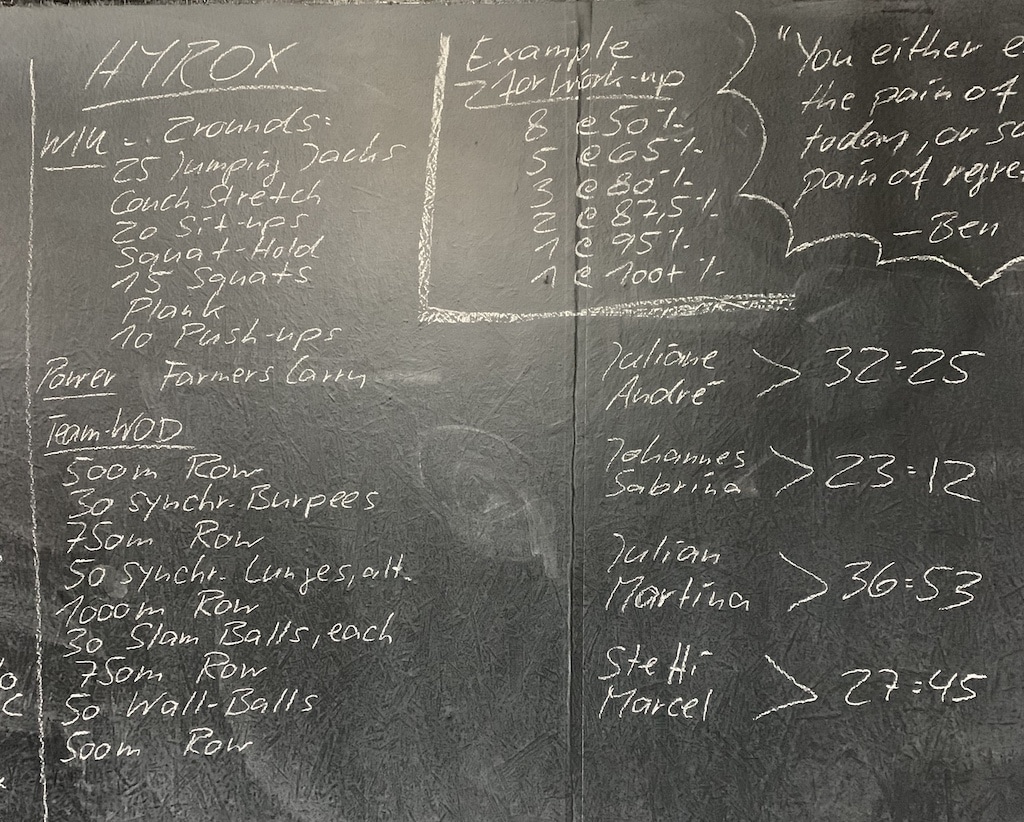 HYROX
W/U - 2rounds:
25 Jumping Jacks
Couch Stretch
20 Sit-ups
Squat-Hold
15 Squats
Plank
10 Push-ups
Power Farmers Carry
Team-WOD
500m Row
30 synchr. Burpees
750m Row
50 synchr. Lunges, alt.
1000m Row
30 Slam Balls, each
750m Row
50 Wall-Balls
500m Row
Example
for Work-up
8 @ 50%
5 @ 65%
3 @ 80%
2 @ 87,5%
1 @ 95%
1 @ 100+%
"You either
the pain of
today, or
pain of
- Ben
Juliane
André > 32:25
Johannes
Sabrina > 23:12
Julian
Martina > 36:53
Steffi
Marcel > 27:45